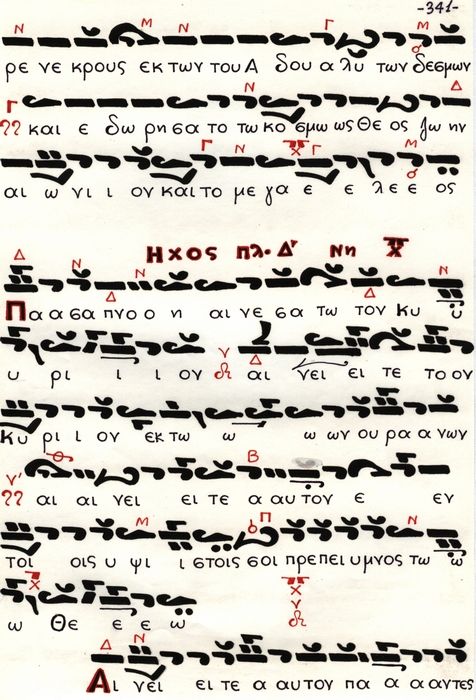 -341-
ρε νε κρους εκ των του Α δου α λυ των δεσμων
και ε δω ρη σα το τω κο σμω ως Θε ος ζω ην
αι ω νι ι ον και το με γα ε ε λε ε ος
Ηχος πλ. Δ' Νη
Πα α σα πνο ο η αι νε σα τω τον Κυ υ
υ ρι ι ι ον αι νει ει τε το ον
Κυ ρι ι ον εκ τω ω ω ων ου ρα α νων
αι αι νει ει τε α αυ τον ε εν
τοι οις υ ψι ι στοις σοι πρε πει υ μνος τω ω
ω Θε ε ε ω
Αι νει ει τε α αυ τον πα α α αν τες